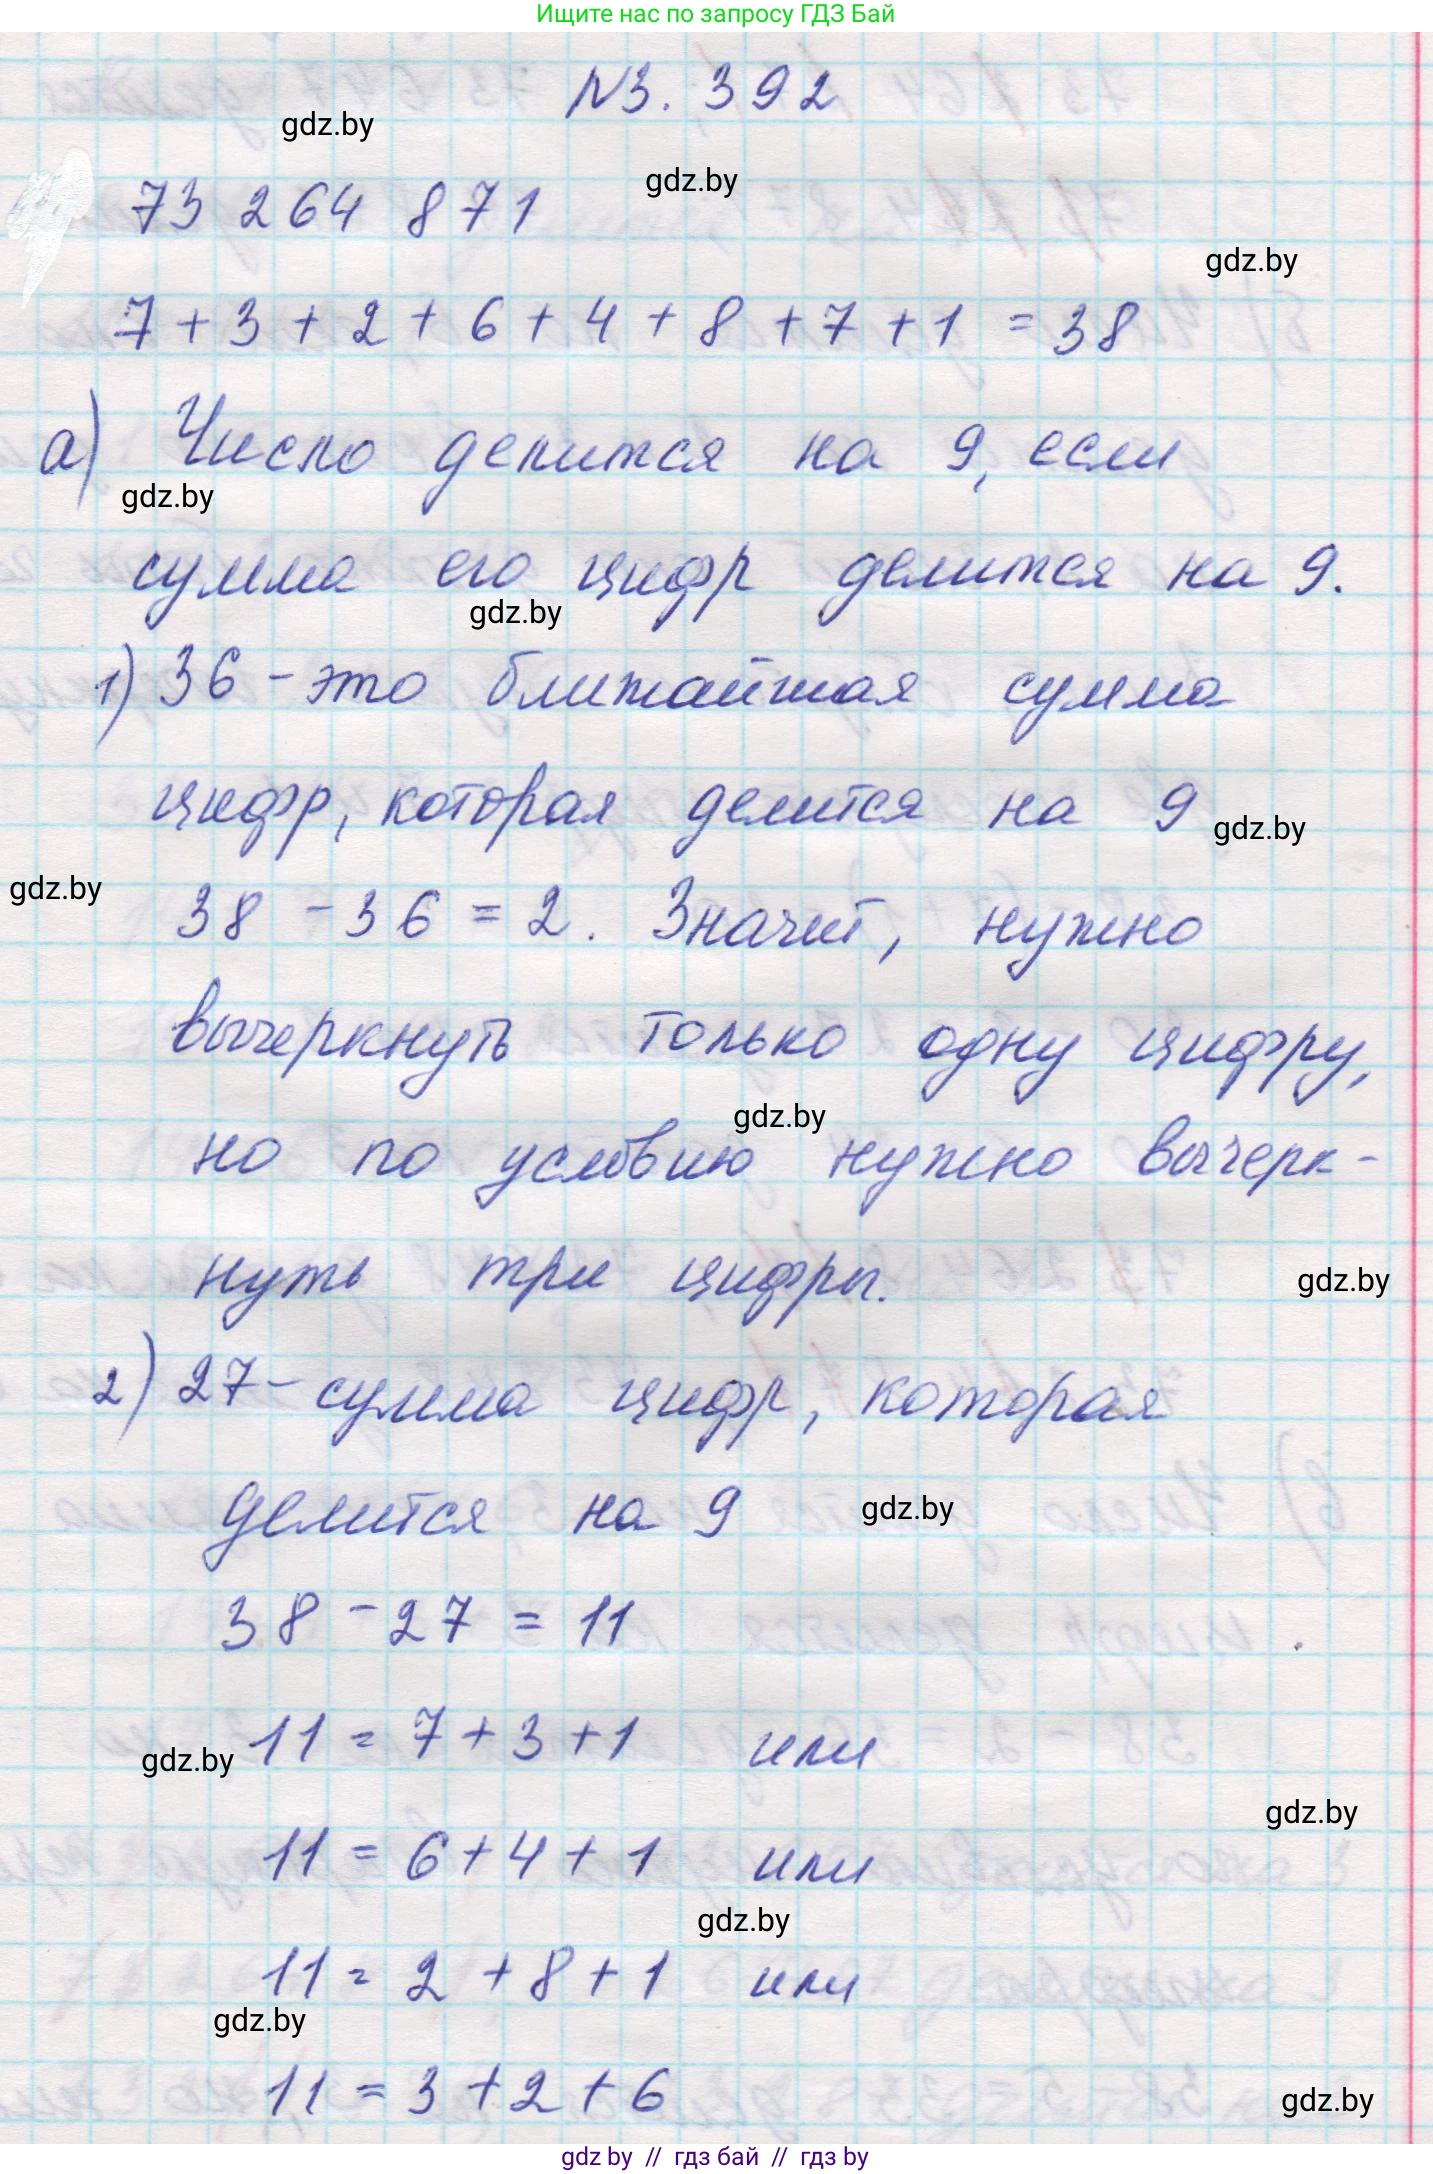 Ищите нас по запросу ГДЗ Бай
N3. 392
gdz.by
gdz.by
73 264 871
gdz.by
7 + 3 + 2 + 6 + 4 + 8 + 7 + 1 = 38
а) Число делится на 9, если
gdz.by
сумма его цифр делится на 9.
gdz.by
1) 36 - это ближайшая сумма
цифр, которая делится на 9
gdz.by
gdz.by
38 - 36 = 2. Значит, нужно
вычеркнуть только одну цифру,
gdz.by
но по условию нужно вычерк-
нуть три цифры.
gdz.by
2) 27 - сумма цифр, которая
делится на 9
gdz.by
38 - 27 = 11
11 = 7 + 3 + 1 или
gdz.by
gdz.by
11 = 6 + 4 + 1 или
gdz.by
11 = 2 + 8 + 1 или
gdz.by
11 = 3 + 2 + 6
gdz.by
gdz.by // гдз бай // гдз by